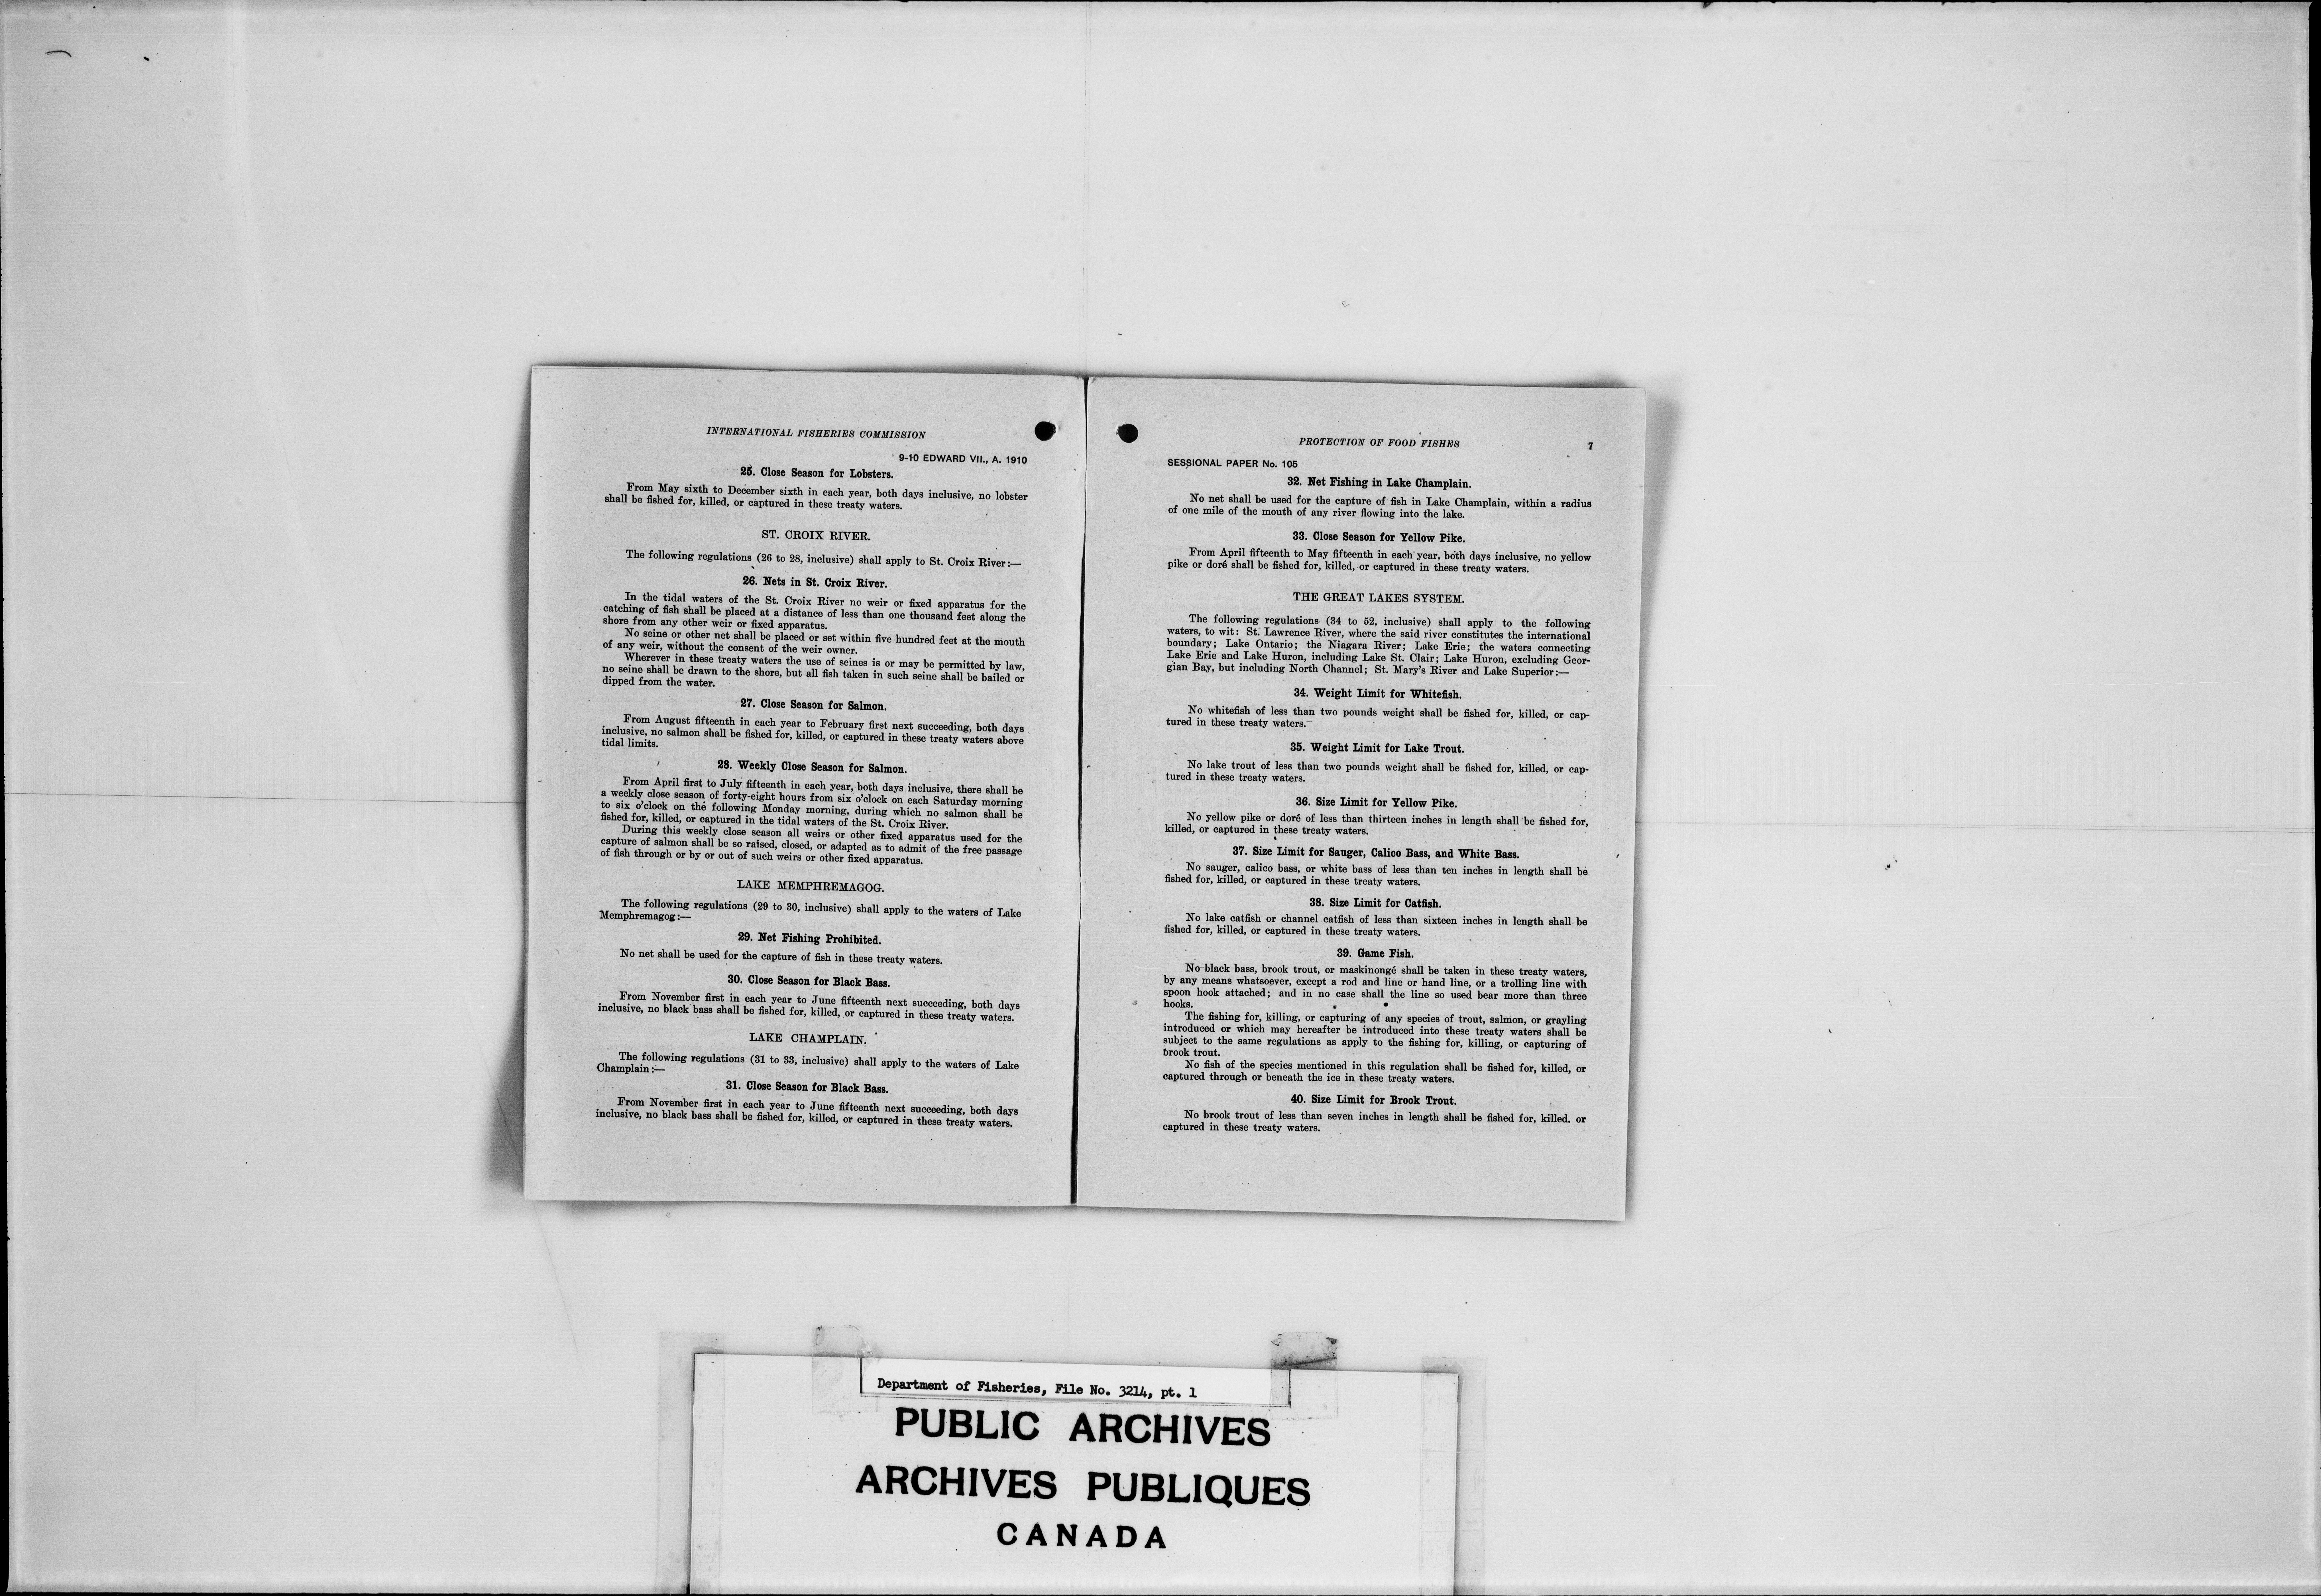 INTERNATIONAL FISHERIES COMMISSION
9-10 EDWARD VII., A. 1910
25. Close Season for Lobsters.
From May sixth to December sixth in each year, both days inclusive, no lobster
shall be fished for, killed, or captured in these treaty waters.
ST. CROIX RIVER.
The following regulations (26 to 28, inclusive) shall apply to St. Croix River:—
26. Nets in St. Croix River.
In the tidal waters of the St. Croix River no weir or fixed apparatus for the
catching of fish shall be placed at a distance of less than one thousand feet along the
shore from any other weir or fixed apparatus.
No seine or other net shall be placed or set within five hundred feet at the mouth
of any weir, without the consent of the weir owner.
Wherever in these treaty waters the use of seines is or may be permitted by law,
no seine shall be drawn to the shore, but all fish taken in such seine shall be bailed or
dipped from the water.
27. Close Season for Salmon.
From August fifteenth in each year to February first next succeeding, both days
inclusive, no salmon shall be fished for, killed, or captured in these treaty waters above
tidal limits.
28. Weekly Close Season for Salmon.
From April first to July fifteenth in each year, both days inclusive, there shall be
a weekly close season of forty-eight hours from six o'clock on each Saturday morning
to six o'clock on the following Monday morning, during which no salmon shall be
fished for, killed, or captured in the tidal waters of the St. Croix River.
During this weekly close season all weirs or other fixed apparatus used for the
capture of salmon shall be so raised, closed, or adapted as to admit of the free passage
of fish through or by or out of such weirs or other fixed apparatus.
LAKE MEMPHREMAGOG.
The following regulations (29 to 30, inclusive) shall apply to the waters of Lake
Memphremagog:—
29. Net Fishing Prohibited.
No net shall be used for the capture of fish in these treaty waters.
30. Close Season for Black Bass.
From November first in each year to June fifteenth next succeeding, both days
inclusive, no black bass shall be fished for, killed, or captured in these treaty waters.
LAKE CHAMPLAIN.
The following regulations (31 to 33, inclusive) shall apply to the waters of Lake
Champlain:—
31. Close Season for Black Bass.
From November first in each year to June fifteenth next succeeding, both days
inclusive, no black bass shall be fished for, killed, or captured in these treaty waters.
PROTECTION OF FOOD FISHES 7
SESSIONAL PAPER No. 105
32. Net Fishing in Lake Champlain.
No net shall be used for the capture of fish in Lake Champlain, within a radius
of one mile of the mouth of any river flowing into the lake.
33. Close Season for Yellow Pike.
From April fifteenth to May fifteenth in each year, both days inclusive, no yellow
pike or doré shall be fished for, killed, or captured in these treaty waters.
THE GREAT LAKES SYSTEM.
The following regulations (34 to 52, inclusive) shall apply to the following
waters, to wit: St. Lawrence River, where the said river constitutes the international
boundary; Lake Ontario; the Niagara River; Lake Erie; the waters connecting
Lake Erie and Lake Huron, including Lake St. Clair; Lake Huron, excluding Geor-
gian Bay, but including North Channel; St. Mary's River and Lake Superior:—
34. Weight Limit for Whitefish.
No whitefish of less than two pounds weight shall be fished for, killed, or cap-
tured in these treaty waters.
35. Weight Limit for Lake Trout.
No lake trout of less than two pounds weight shall be fished for, killed, or cap-
tured in these treaty waters.
36. Size Limit for Yellow Pike.
No yellow pike or doré of less than thirteen inches in length shall be fished for,
killed, or captured in these treaty waters.
37. Size Limit for Sauger, Calico Bass, and White Bass.
No sauger, calico bass, or white bass of less than ten inches in length shall be
fished for, killed, or captured in these treaty waters.
38. Size Limit for Catfish.
No lake catfish or channel catfish of less than sixteen inches in length shall be
fished for, killed, or captured in these treaty waters.
39. Game Fish.
No black bass, brook trout, or maskinongé shall be taken in these treaty waters,
by any means whatsoever, except a rod and line or hand line, or a trolling line with
spoon hook attached; and in no case shall the line so used bear more than three
hooks.
The fishing for, killing, or capturing of any species of trout, salmon, or grayling
introduced or which may hereafter be introduced into these treaty waters shall be
subject to the same regulations as apply to the fishing for, killing, or capturing of
brook trout.
No fish of the species mentioned in this regulation shall be fished for, killed, or
captured through or beneath the ice in these treaty waters.
40. Size Limit for Brook Trout.
No brook trout of less than seven inches in length shall be fished for, killed. or
captured in these treaty waters.
Department of Fisheries, File No. 3214, pt. 1
PUBLIC ARCHIVES
ARCHIVES PUBLIQUES
CANADA